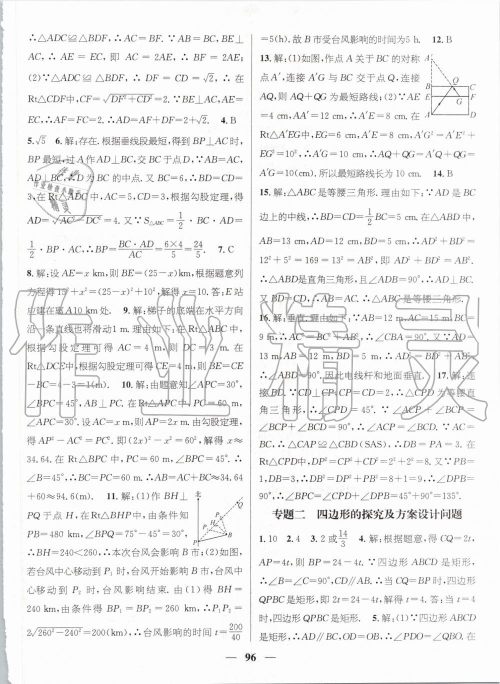 ∴△ADC≌△BDF, ∴AC=BF. ∵AB=BC, BE⊥
AC, ∴AE=EC, 即 AC=2AE, ∴BF=2AE;
(2)∵△ADC≌△BDF, ∴DF=CD=√2, ∴在
Rt△CDF中,CF=√(DF²+CD²)=2. ∵BE⊥AC,AE=
EC,∴AF=FC=2. ∴AD=AF+DF=2+√2. 4.B
5.√5 6.解:存在.根据垂线段最短,得到BP⊥AC时,
BP最短,过A作AD⊥BC,交BC于点D,∵AB=AC,
AD⊥BC,∴D为BC的中点.又BC=6,∴BD=CD=
3,在Rt△ADC中,AC=5,CD=3,根据勾股定理,得
AD=√(AC²-DC²)=4.又∵S△ABC=1/2·BC·AD=
1/2·BP·AC,∴BP=BC·AD/AC=6×4/5=24/5. 7.C
8.解:设AE=x km,则BE=(25-x)km,根据题意列
方程得15²+x²=(25-x)²+10²,解得x=10.答:E站
应建在离A10 km处. 9.解:梯子的底端在水平方向
沿一条直线也将滑动1 m.理由如下:在Rt△ABC中,
根据勾股定理可得AC=4 m,则DC=3 m.在
Rt△DCE中,根据勾股定理可得CE=4 m,则BE=CE
-BC=4-3=1(m). 10.解:由题意知∠APC=30°,
∠BPC=45°,AB⊥PC.在Rt△APC中,PC=60 m,
∠APC=30°,设AC=x m,则AP=2x m.由勾股定理,
得AP²-AC²=PC²,即(2x)²-x²=60²,解得x≈
34.64.在Rt△BPC中,PC=60 m,∠BPC=45°.∴
∠B=45°,∴BC=PC=60 m.∴AB=AC+BC≈34.64
+60≈94.6(m). 11.解:(1)作BH⊥
PQ于点H,在Rt△BHP中,由条件知
PB=480 km,∠BPQ=75°-45°=30°,
∴BH=240<260,∴本次台风会影响B市;(2)如图,
若台风中心移动到P₁时,台风开始影响B市,台风中
心移动到P₂时,台风影响结束.由(1)得BH=
240 km,由条件得BP₁=BP₂=260 km,∴P₁P₂=
2√(260²-240²)=200(km),∴台风影响的时间t=200/40
=5(h).故B市受台风影响的时间为5 h. 12.B
13.解:(1)如图,作点A关于BC的对称
点A′,连接A′G与BC交于点Q,连接
AQ,则AQ+QG为最短路线;(2)∵AE
=4 cm,AA′=12 cm,∴A′E=8 cm.在
Rt△A′EG中,EG=6 cm,A′E=8 cm,A′G²=A′E²+
EG²=10²,∴A′G=10 cm,∴AQ+QG=A′Q+QG=
A′G=10(cm).所以最短路线长为10 cm. 14.B
15.解:△ABC是等腰三角形.理由如下:∵AD是BC
边上的中线,∴BD=CD=1/2BC=5 cm.在△ABD中,
AB=13 cm,AD=12 cm,BD=5 cm,∴AD²+BD²=
12²+5²=169=13²=AB²,即AD²+BD²=AB²,
∴△ABD是直角三角形,且∠ADB=90°,∴AD⊥BC.
又BD=CD,∴AB=AC,∴△ABC是等腰三角形.
16.解:垂直.理由如下:∵AB=12 m,AC=15 m,BC=
9 m,∴AC²=BC²+AB²,∴∠CBA=90°.又∵AD=
13 m,AB=12 m,BD=5 m,∴AD²=BD²+AB²,
∴∠ABD=90°,因此电线杆和地面垂直. 17.解:连
接BD.∵CD⊥CP,且CD=CP=2,∴△CPD为等腰直
角三角形,∴∠CPD=45°. ∵∠ACP+∠BCP=
∠BCP+∠BCD=90°,∴∠ACP=∠BCD.又∵CA=
CB,∴△CAP≌△CBD(SAS),∴DB=PA=3.在
Rt△CPD中,DP²=CP²+CD²=2²+2²=8.又∵PB=
1,DB=3,∴DB²=DP²+PB²=8+1=9,∴∠DPB=
90°,∴∠BPC=∠DPB+∠CPD=45°+90°=135°.
专题二 四边形的探究及方案设计问题
1.10 2.4 3.2或14/3 4.解:根据题意,得CQ=2t,
AP=4t,则BP=24-4t. ∵四边形ABCD是矩形,
∴∠B=∠C=90°,CD∥AB,∴当CQ=BP时,四边形
QPBC是矩形,即2t=24-4t,解得t=4.答:当t=4 时,
四边形QPBC是矩形. 5.解:(1)∵四边形ABCD是
矩形,∴AD∥BC,OD=OB,∴∠PDO=∠QBO,在
96